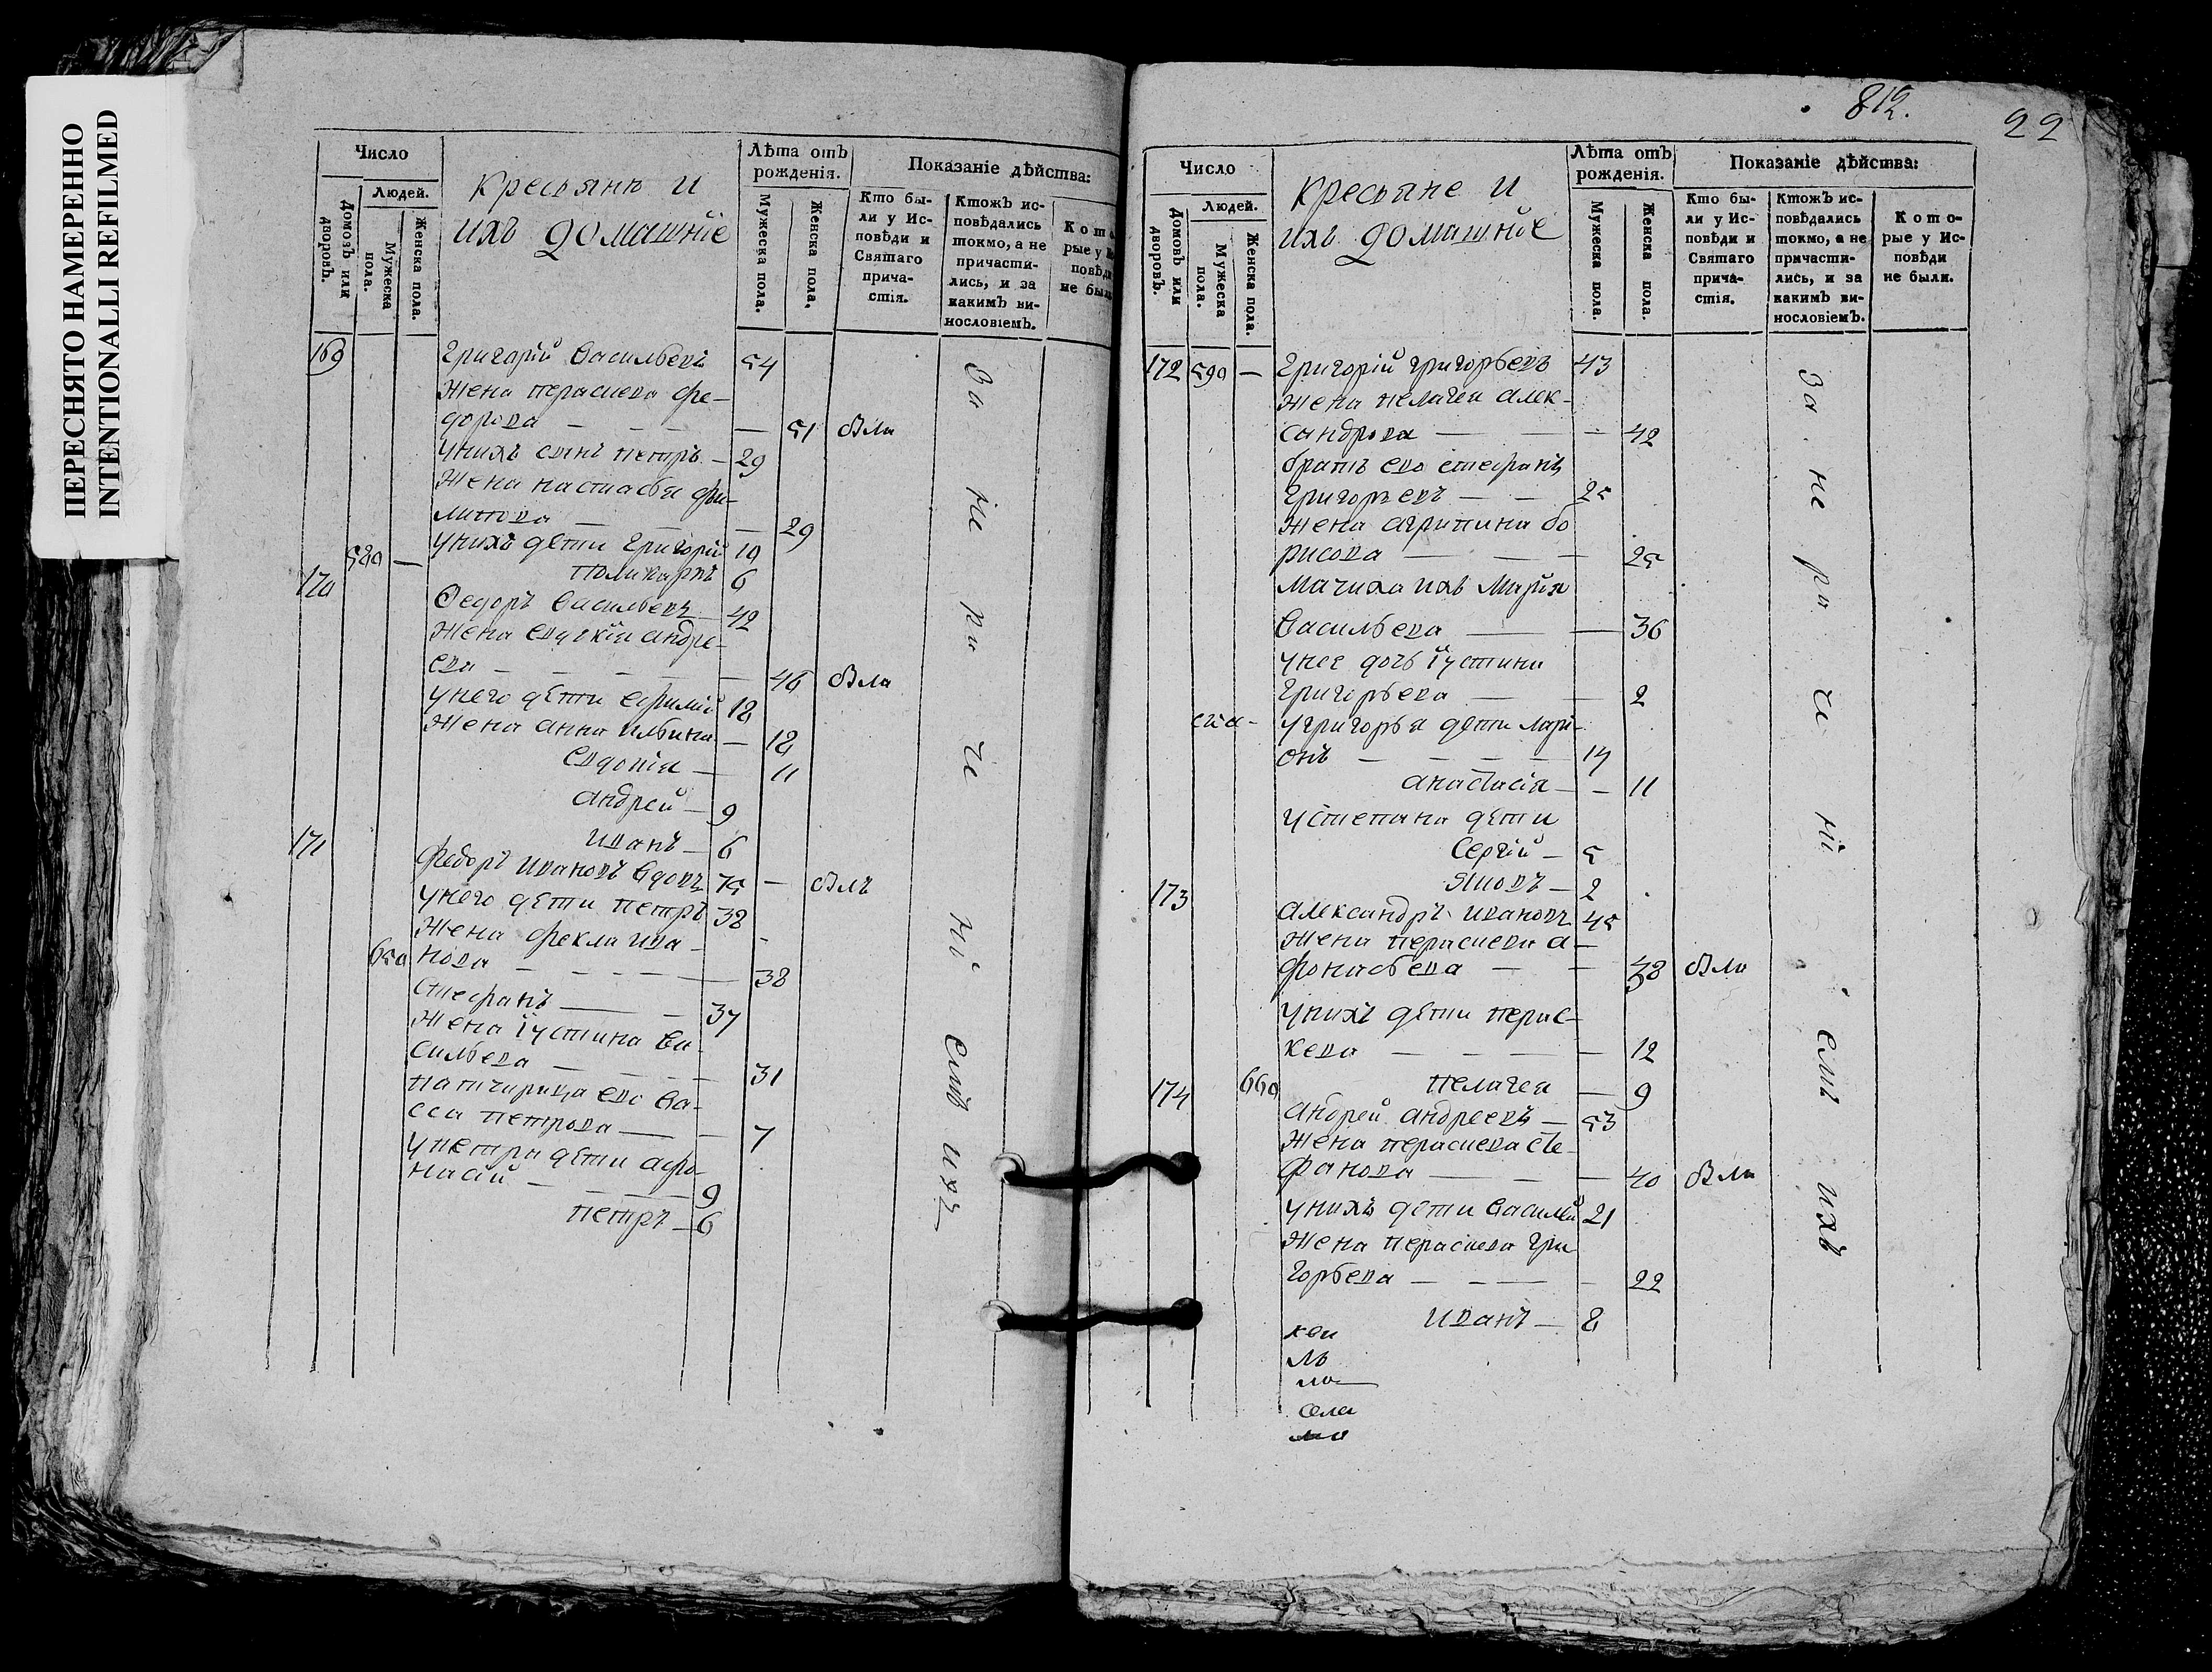 ПЕРЕСНЯТО НАМЕРЕННО
INTENTIONALLI REFILMED
Число
Людей.
Домовъ или дворовъ.
Мужеска пола.
Женска пола.
кресьянѣ и
ихъ домашніе
Лѣта отъ рожденія.
Мужеска пола.
Женска пола.
Показаніе дѣйства:
Кто были у Исповѣди и Святаго причастія.
Ктожъ исповѣдались токмо, а не причастились, и за какимъ винословіемъ.
169
Григорій Васильевъ 54
жена параскева фе-
дорова — — — 51 была
у нихъ сынъ петръ — 29
жена настасья фи-
липова — — — 29
580 — у нихъ дѣти григорій 10
поликарпъ 6
170
Ѳедоръ Васильевъ 42
жена евдокія андре-
ева — — — 46 была
у него дѣти ефимій 18
жена анна ильина — 18
евдокія — 11
андрей — 9
иванъ — 6
171
федоръ ивановъ вдовъ 75 — былъ
у него дѣти петръ 38
жена фекла ива-
650 нова — — — 38
стефанъ — 37
жена іустина ва-
сильева — — — 31
патчирица его ва-
сса петрова — — 7
у петра дѣти афо-
насій — — — 9
петръ — 6
за не ра че ні емъ ихъ
812.
22
Число
Людей.
Домовъ или дворовъ.
Мужеска пола.
Женска пола.
кресьяне и
ихъ домашніе
Лѣта отъ рожденія.
Мужеска пола.
Женска пола.
Показаніе дѣйства:
Кто были у Исповѣди и Святаго причастія.
Ктожъ исповѣдались токмо, а не причастились, и за какимъ винословіемъ.
Которые у Исповѣди не были.
172 590 — Григорій григорьевъ 43
жена пелагея алек-
сандрова — — — 42
братъ его стефанъ
григорьевъ — — 25
жена агрипина бо
рисова — — — 25
мачиха ихъ марія
Васильева — — 36
у нее дочь іустина
григорьева — — 2
у григорья дѣти лари-
онъ — — — — 14
анастасія — — 11
у степана дѣти
Сергій — 5
яковъ — 2
173
александръ ивановъ 45
жена параскева а-
фонасьева — — 48 была
у нихъ дѣти парас-
кева — — — — 12
660 пелагея — 9
174
андрей андреевъ — 53
жена параскева сте-
фанова — — — 40 была
у нихъ дѣти василій 21
жена параскева гри
горьева — — — 22
иванъ — 8
за не ра че ні емъ ихъ